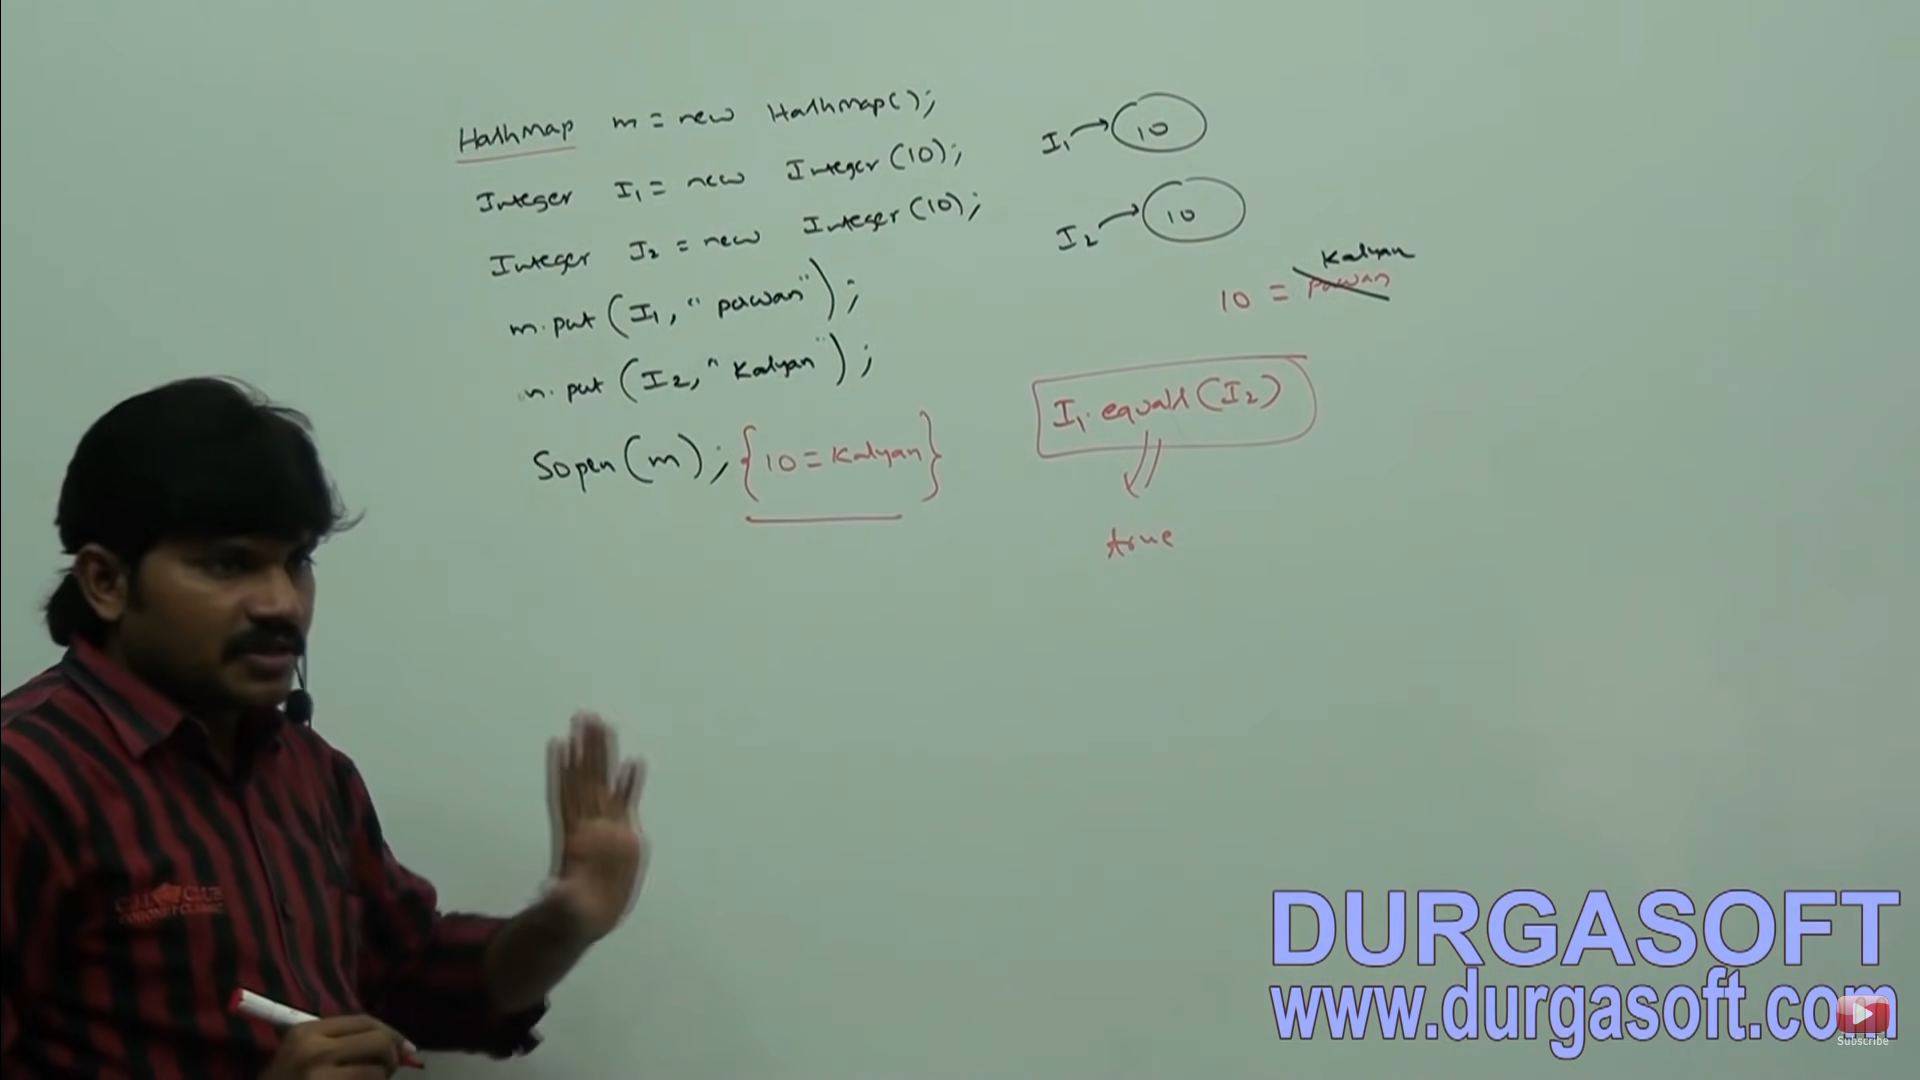 HashMap m = new HashMap();
Integer I1 = new Integer(10);
Integer I2 = new Integer(10);
m.put(I1, "pawan");
m.put(I2, "Kalyan");
Sopln(m); {10=Kalyan}
I1 → 10
I2 → 10
Kalyan
10 = pawan
I1.equals(I2)
true
DURGASOFT
www.durgasoft.com
Subscribe